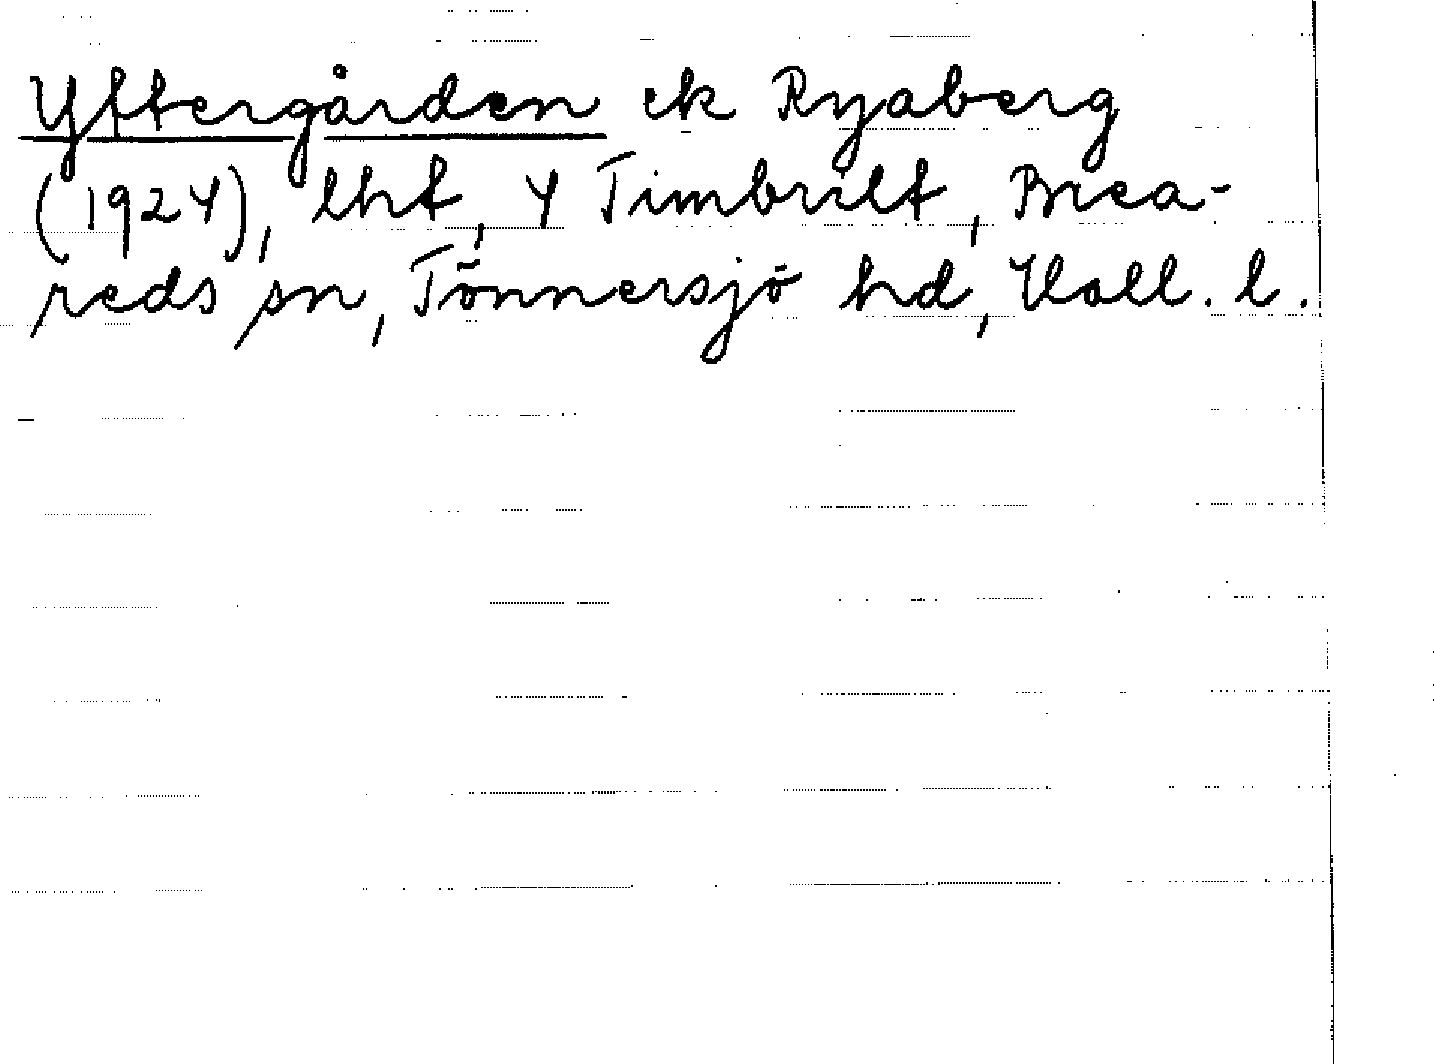 Yftergården ek Ryaberg
(1924), lht, 4 Timbrilt, Brea-
reds sn, Tönnersjö hd, Hall. l.